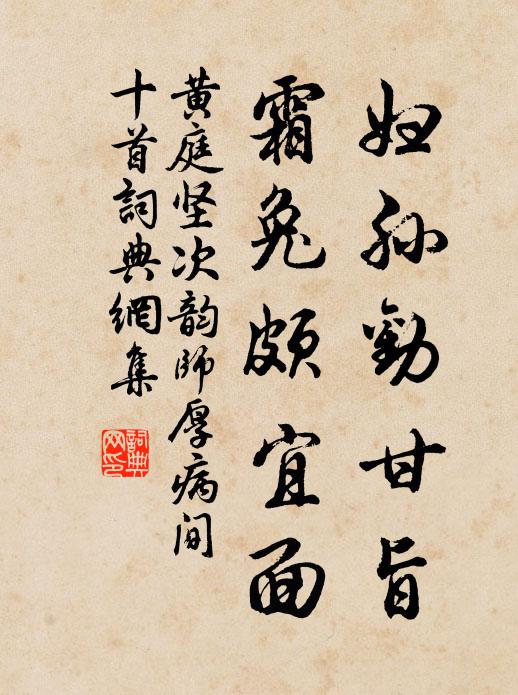 妇孙劝甘旨
霜兔颇宜面
黄庭坚次韵师厚病间
十首詞典網集
詞典网印